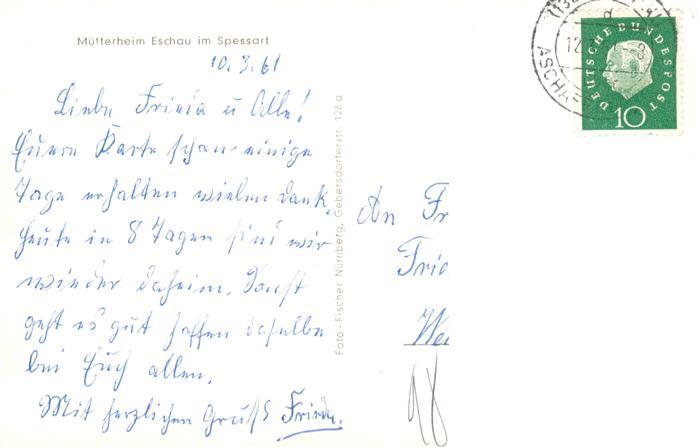 Mütterheim Eschau im Spessart
10.3.61
Liebe Frieda u Alle!
Euere Karte schon einige
Tage erhalten vielen Dank.
Heute in 8 Tagen sind wir
wieder daheim. Sonst
geht es gut hoffen dasselbe
bei Euch allen.
Mit herzlichen Gruß Frieda.
Foto-Fischer Nürnberg, Gebersdorferstr. 126a
An Fr
Frie
We
98
DEUTSCHE BUNDESPOST
10
ASCHAF
12.3.